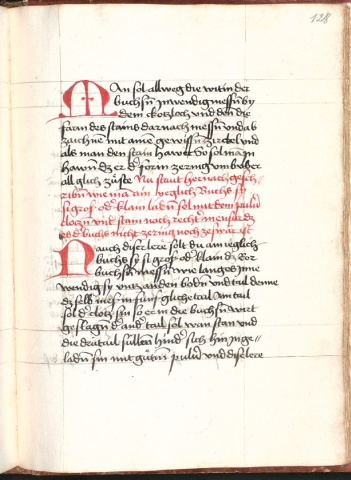 128
Man sol allweg die witin der
buchsn̄ Inwendig messn̄ by
dem clotzloch vnd den die
form des stains dar nach messn̄ vnd ab
zaichnē mit ainē gewissn̄ zirckel vnd
als man den stain hawet So sol man In
hawn̄ dz er dˢ form zering vmb vber
all glich zuste Nu staut hernach gesch//
ribn̄ wie man ain yeglich Buchs sy
si gros odˢ klain ladn̄ sol mit dem puluˢ
clotzn̄ vnd stain nach rechtˢ mensur dz
es dˢ buchs nicht zering noch zeswär ist
Nach diser lere solt du ain yeglich
buchs sy si gros odˢ klain dz Ror
buchsn̄ messn̄ wie lang es Inne
wendig sy vntz an den bodn̄ vnd tail denne
dz selb mes in funf gliche tail Am tail
sol dˢ clotz sin so er in die buchsn̄ wirt
geslagn̄ dˢ andˢ tail sol wan stan vnd
die drü tail sullen hindˢ sich hin Inge//
ladn̄ sin mit gůtm̄ puluˢ vnd dise lere